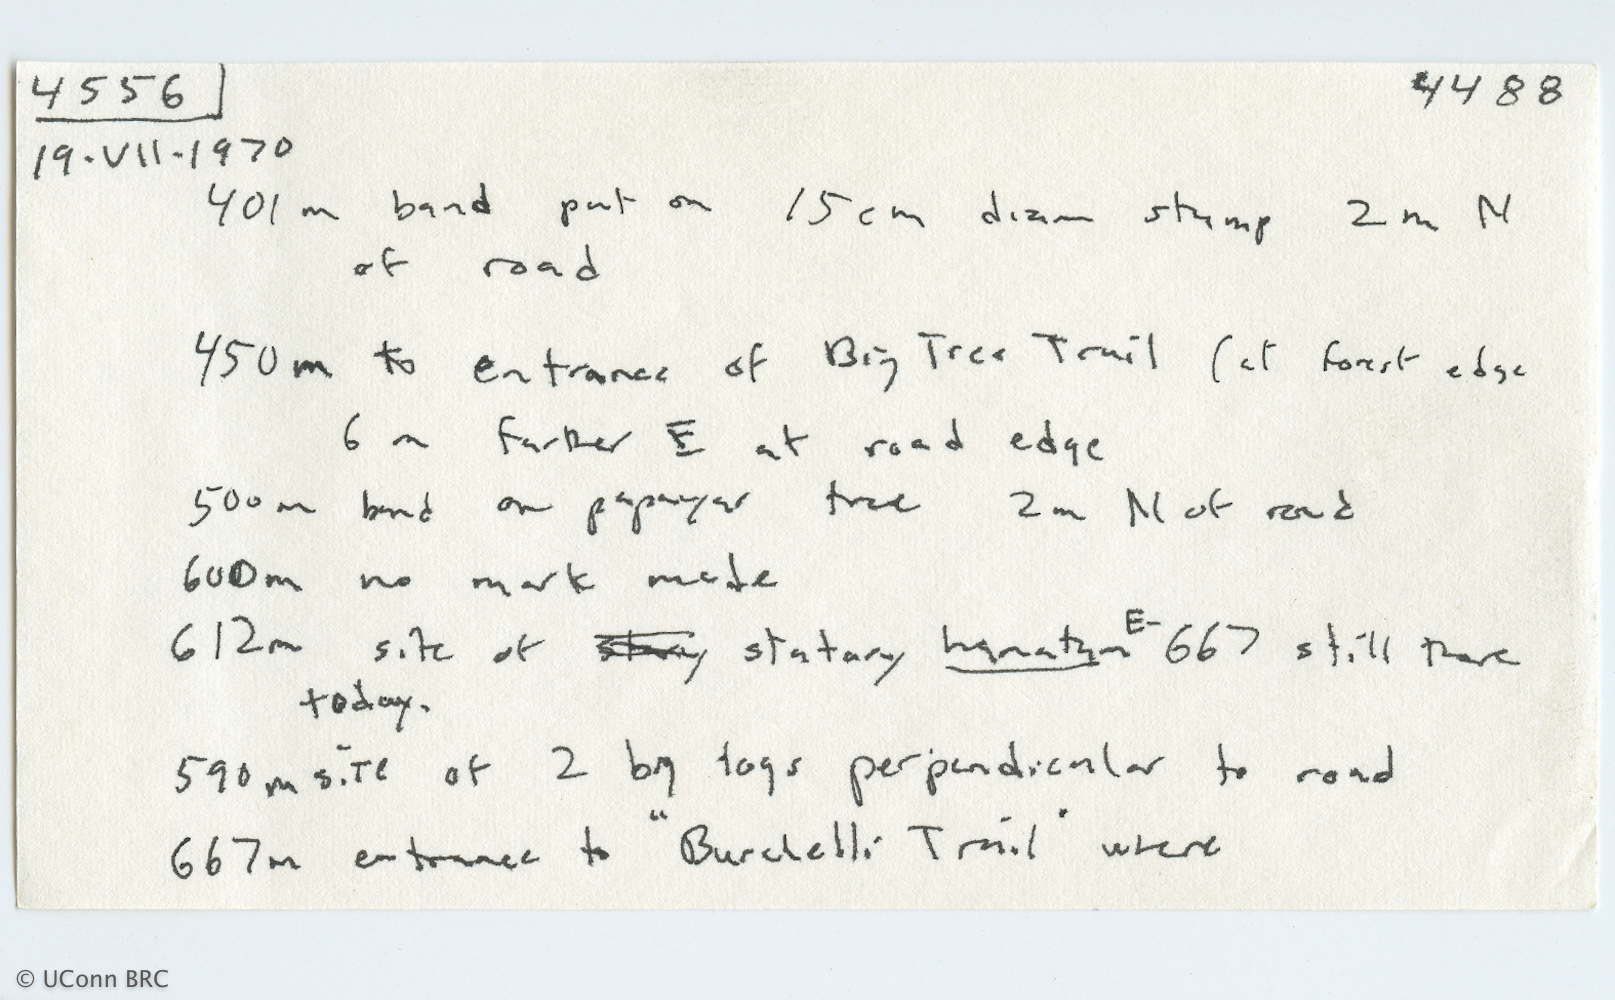 4556 4488
19.VII.1970
401m band put on 15cm diam stump 2m N
of road
450m to entrance of Big Tree Trail (at forest edge
6m farther E at road edge
500m band on papayar tree 2m N of road
600m no mark made
612m site of statary hamatum E-667 still there
today.
590m site of 2 big logs perpendicular to road
667m entrance to "Burchelli Trail" where
© UConn BRC